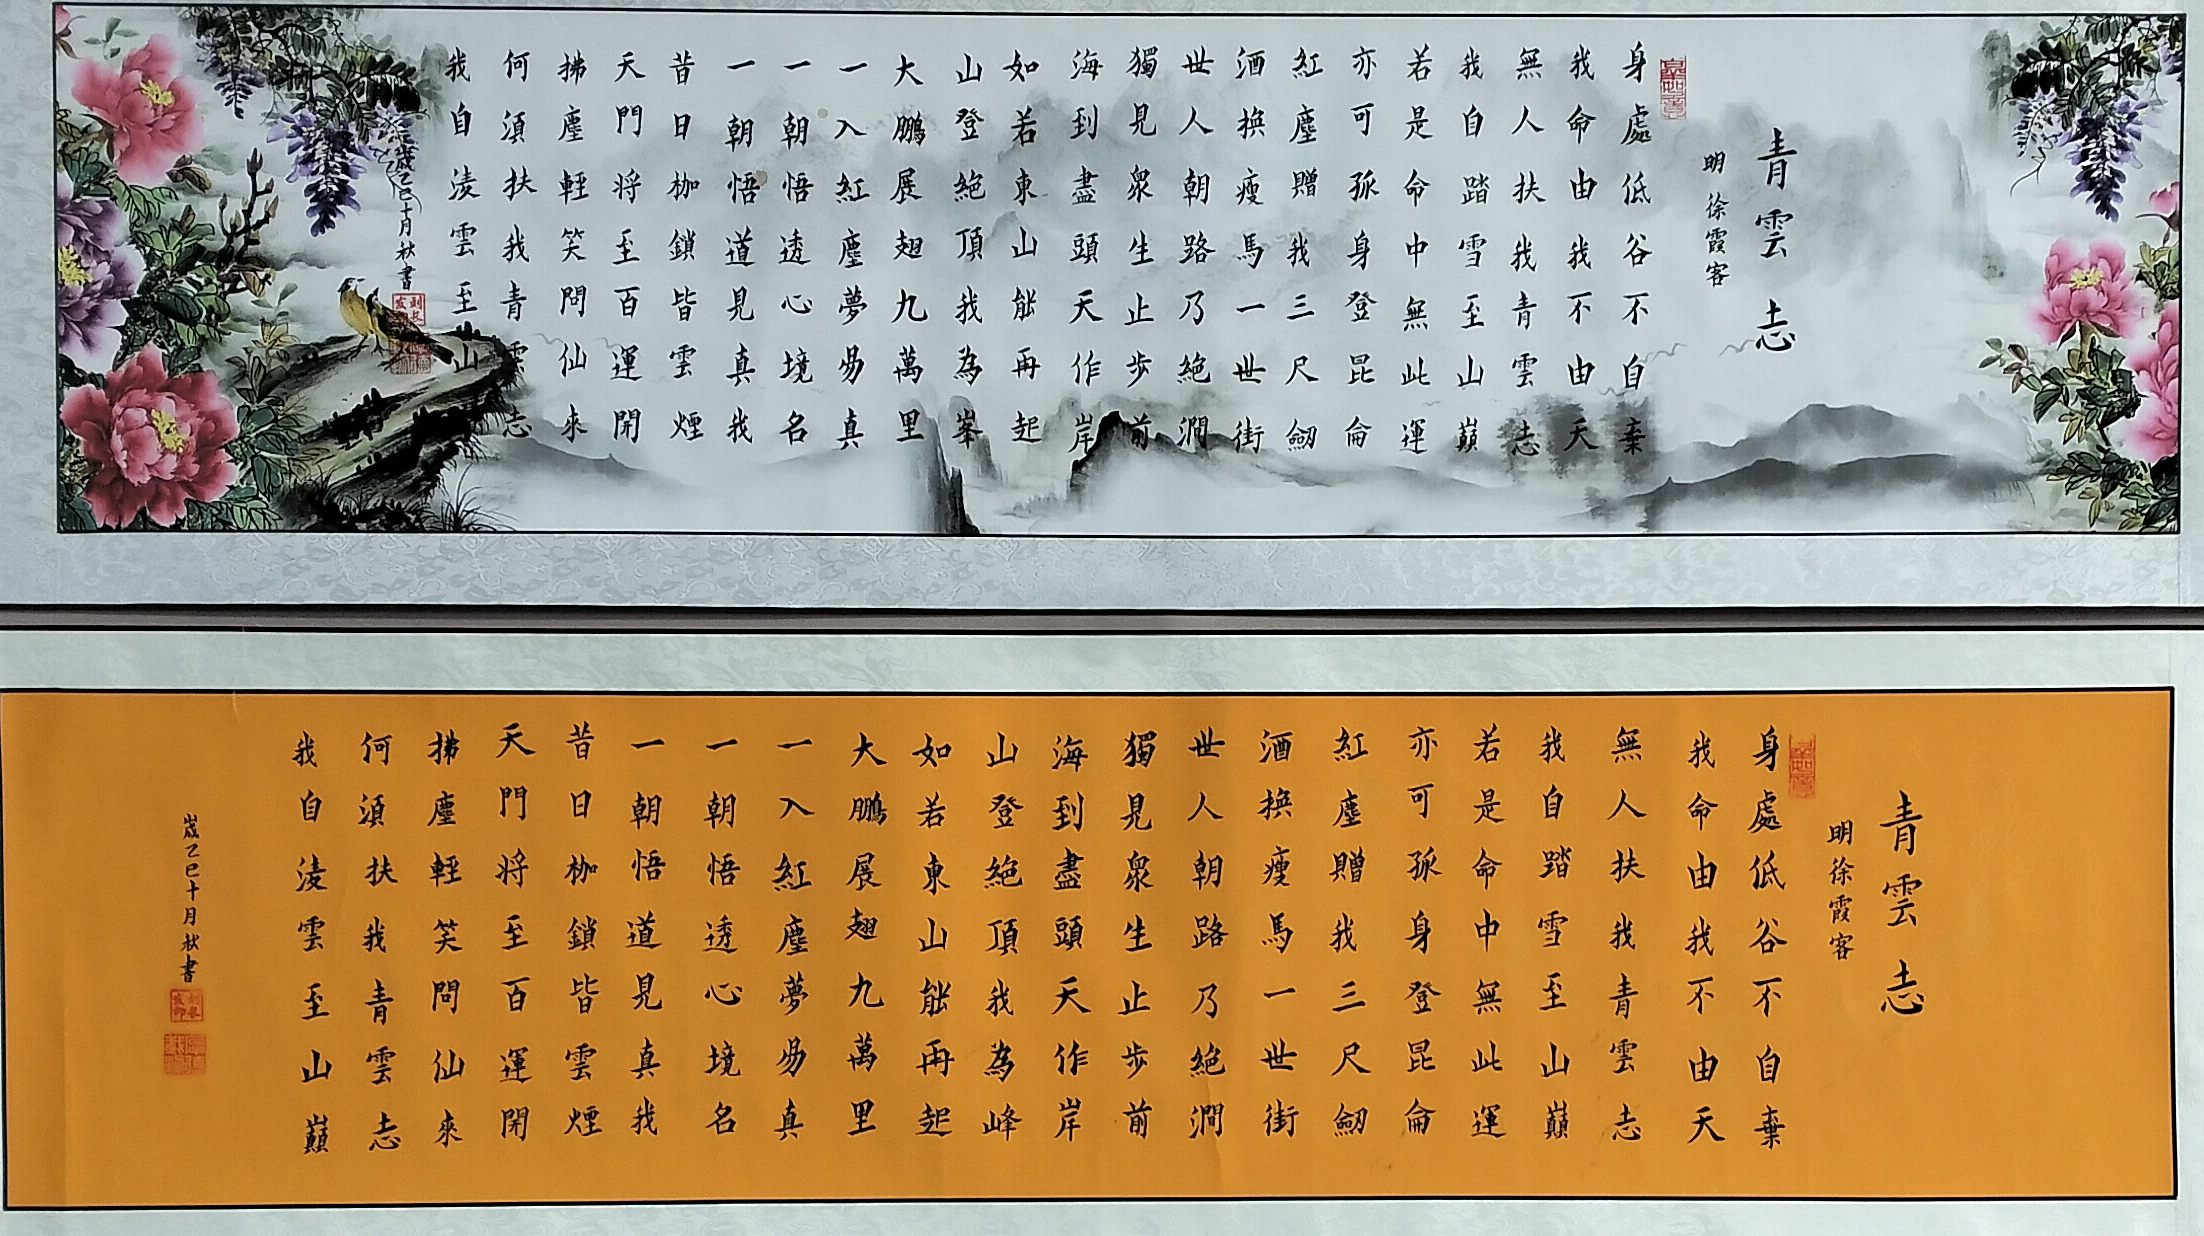 青雲志
明 徐霞客
身處低谷不自棄
我命由我不由天
無人扶我青雲志
我自踏雪至山巔
若是命中無此運
亦可孤身登昆侖
紅塵贈我三尺劒
酒換瘦馬一世街
世人朝路乃絕澗
獨見衆生止步前
海到盡頭天作岸
山登絕頂我為峯
如若東山能再起
大鵬展翅九萬里
一入紅塵夢易真
一朝悟透心境名
一朝悟道見真我
昔日枷鎖皆雲煙
天門将至百運開
拂塵輕笑問仙來
何須扶我青雲志
我自淩雲至山
歲乙巳十月秋書
青雲志
明徐霞客
身處低谷不自棄
我命由我不由天
無人扶我青雲志
我自踏雪至山巔
若是命中無此運
亦可孤身登昆侖
紅塵贈我三尺劒
酒換瘦馬一世街
世人朝路乃絕澗
獨見衆生止步前
海到盡頭天作岸
山登絕頂我為峰
如若東山能再起
大鵬展翅九萬里
一入紅塵夢易真
一朝悟透心境名
一朝悟道見真我
昔日枷鎖皆雲煙
天門将至百運開
拂塵輕笑問仙來
何須扶我青雲志
我自淩雲至山巔
歲乙巳十月秋書